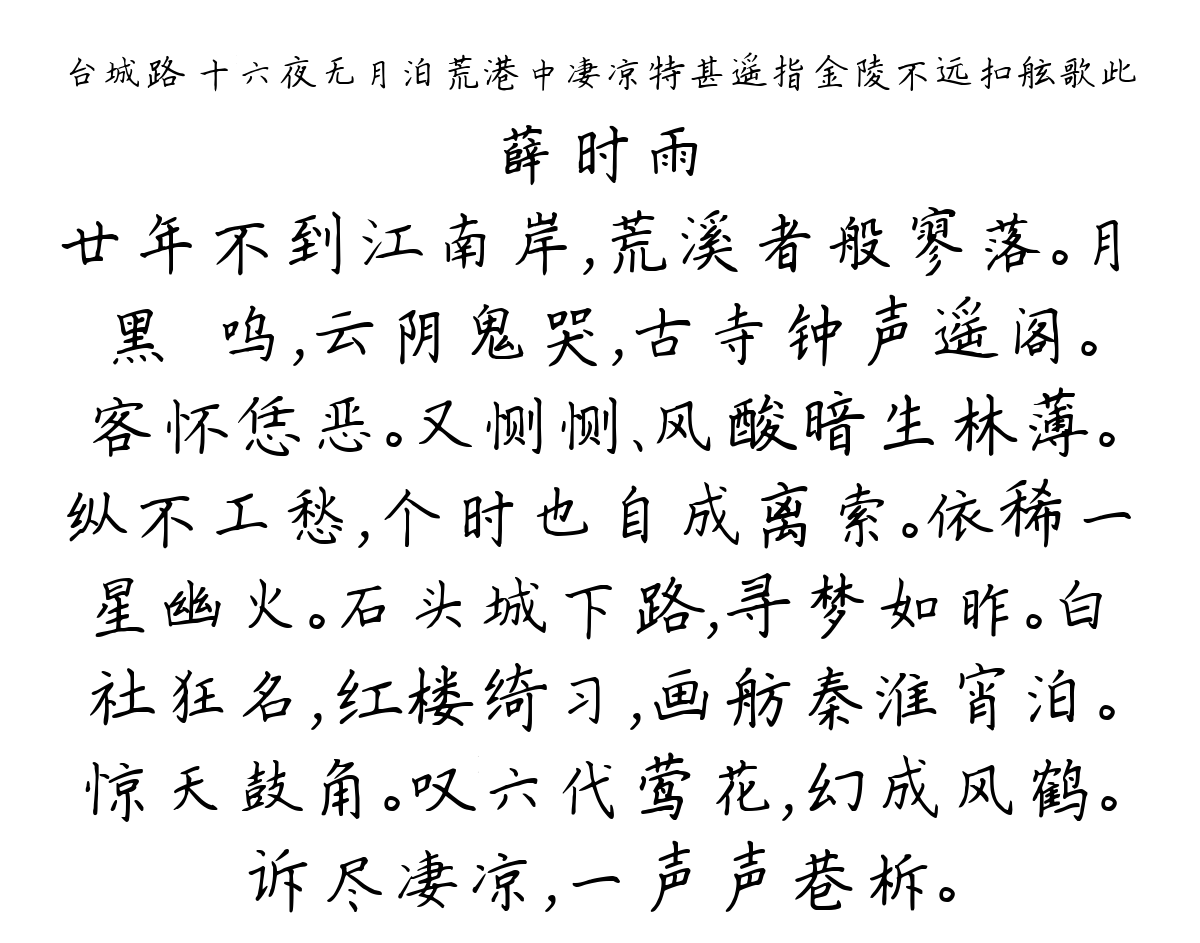 台城路 十六夜无月泊荒港中凄凉特甚遥指金陵不远扣舷歌此
薛时雨
廿年不到江南岸,荒溪者般寥落。月
黑 呜,云阴鬼哭,古寺钟声遥阁。
客怀恁恶。又恻恻、风酸暗生林薄。
纵不工愁,个时也自成离索。依稀一
星幽火。石头城下路,寻梦如昨。白
社狂名,红楼绮习,画舫秦淮宵泊。
惊天鼓角。叹六代莺花,幻成风鹤。
诉尽凄凉,一声声巷柝。